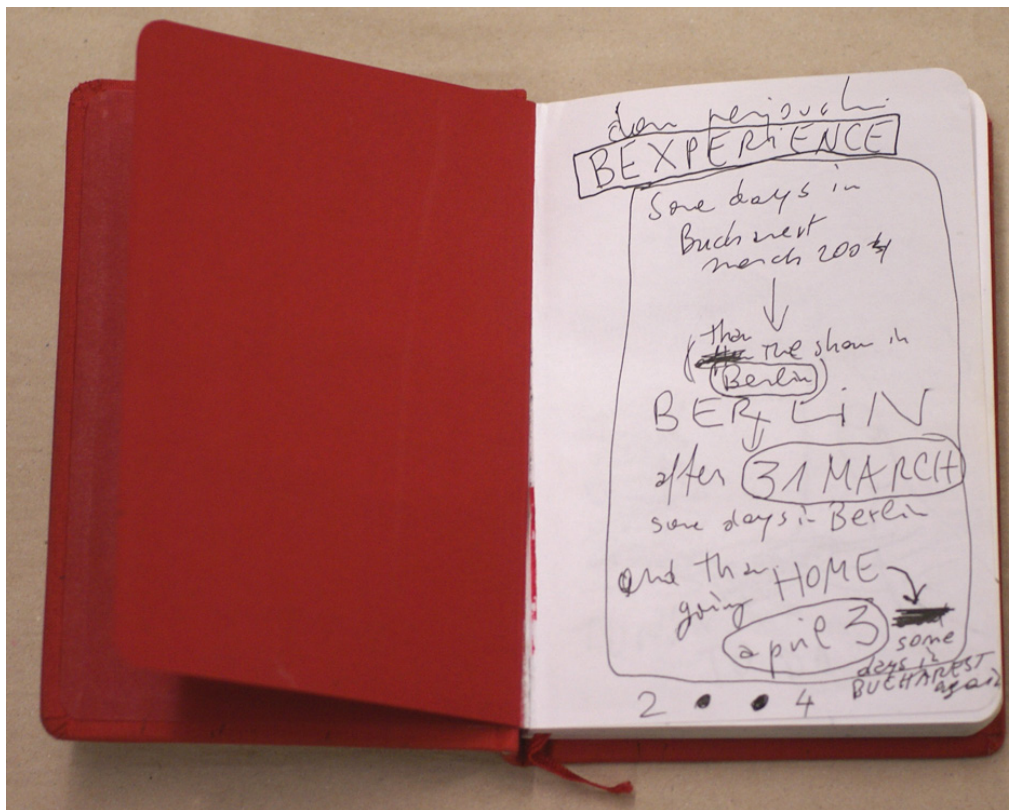 dan perjovschi
BEXPERiENCE
Some days in
Bucharest
march 2004
than
(the show in
Berlin)
BERLiN
after 31 MARCH
some days in Berlin
and than HOME
going
april 3
some
days in
BUCHAREST
again
2 • • 4